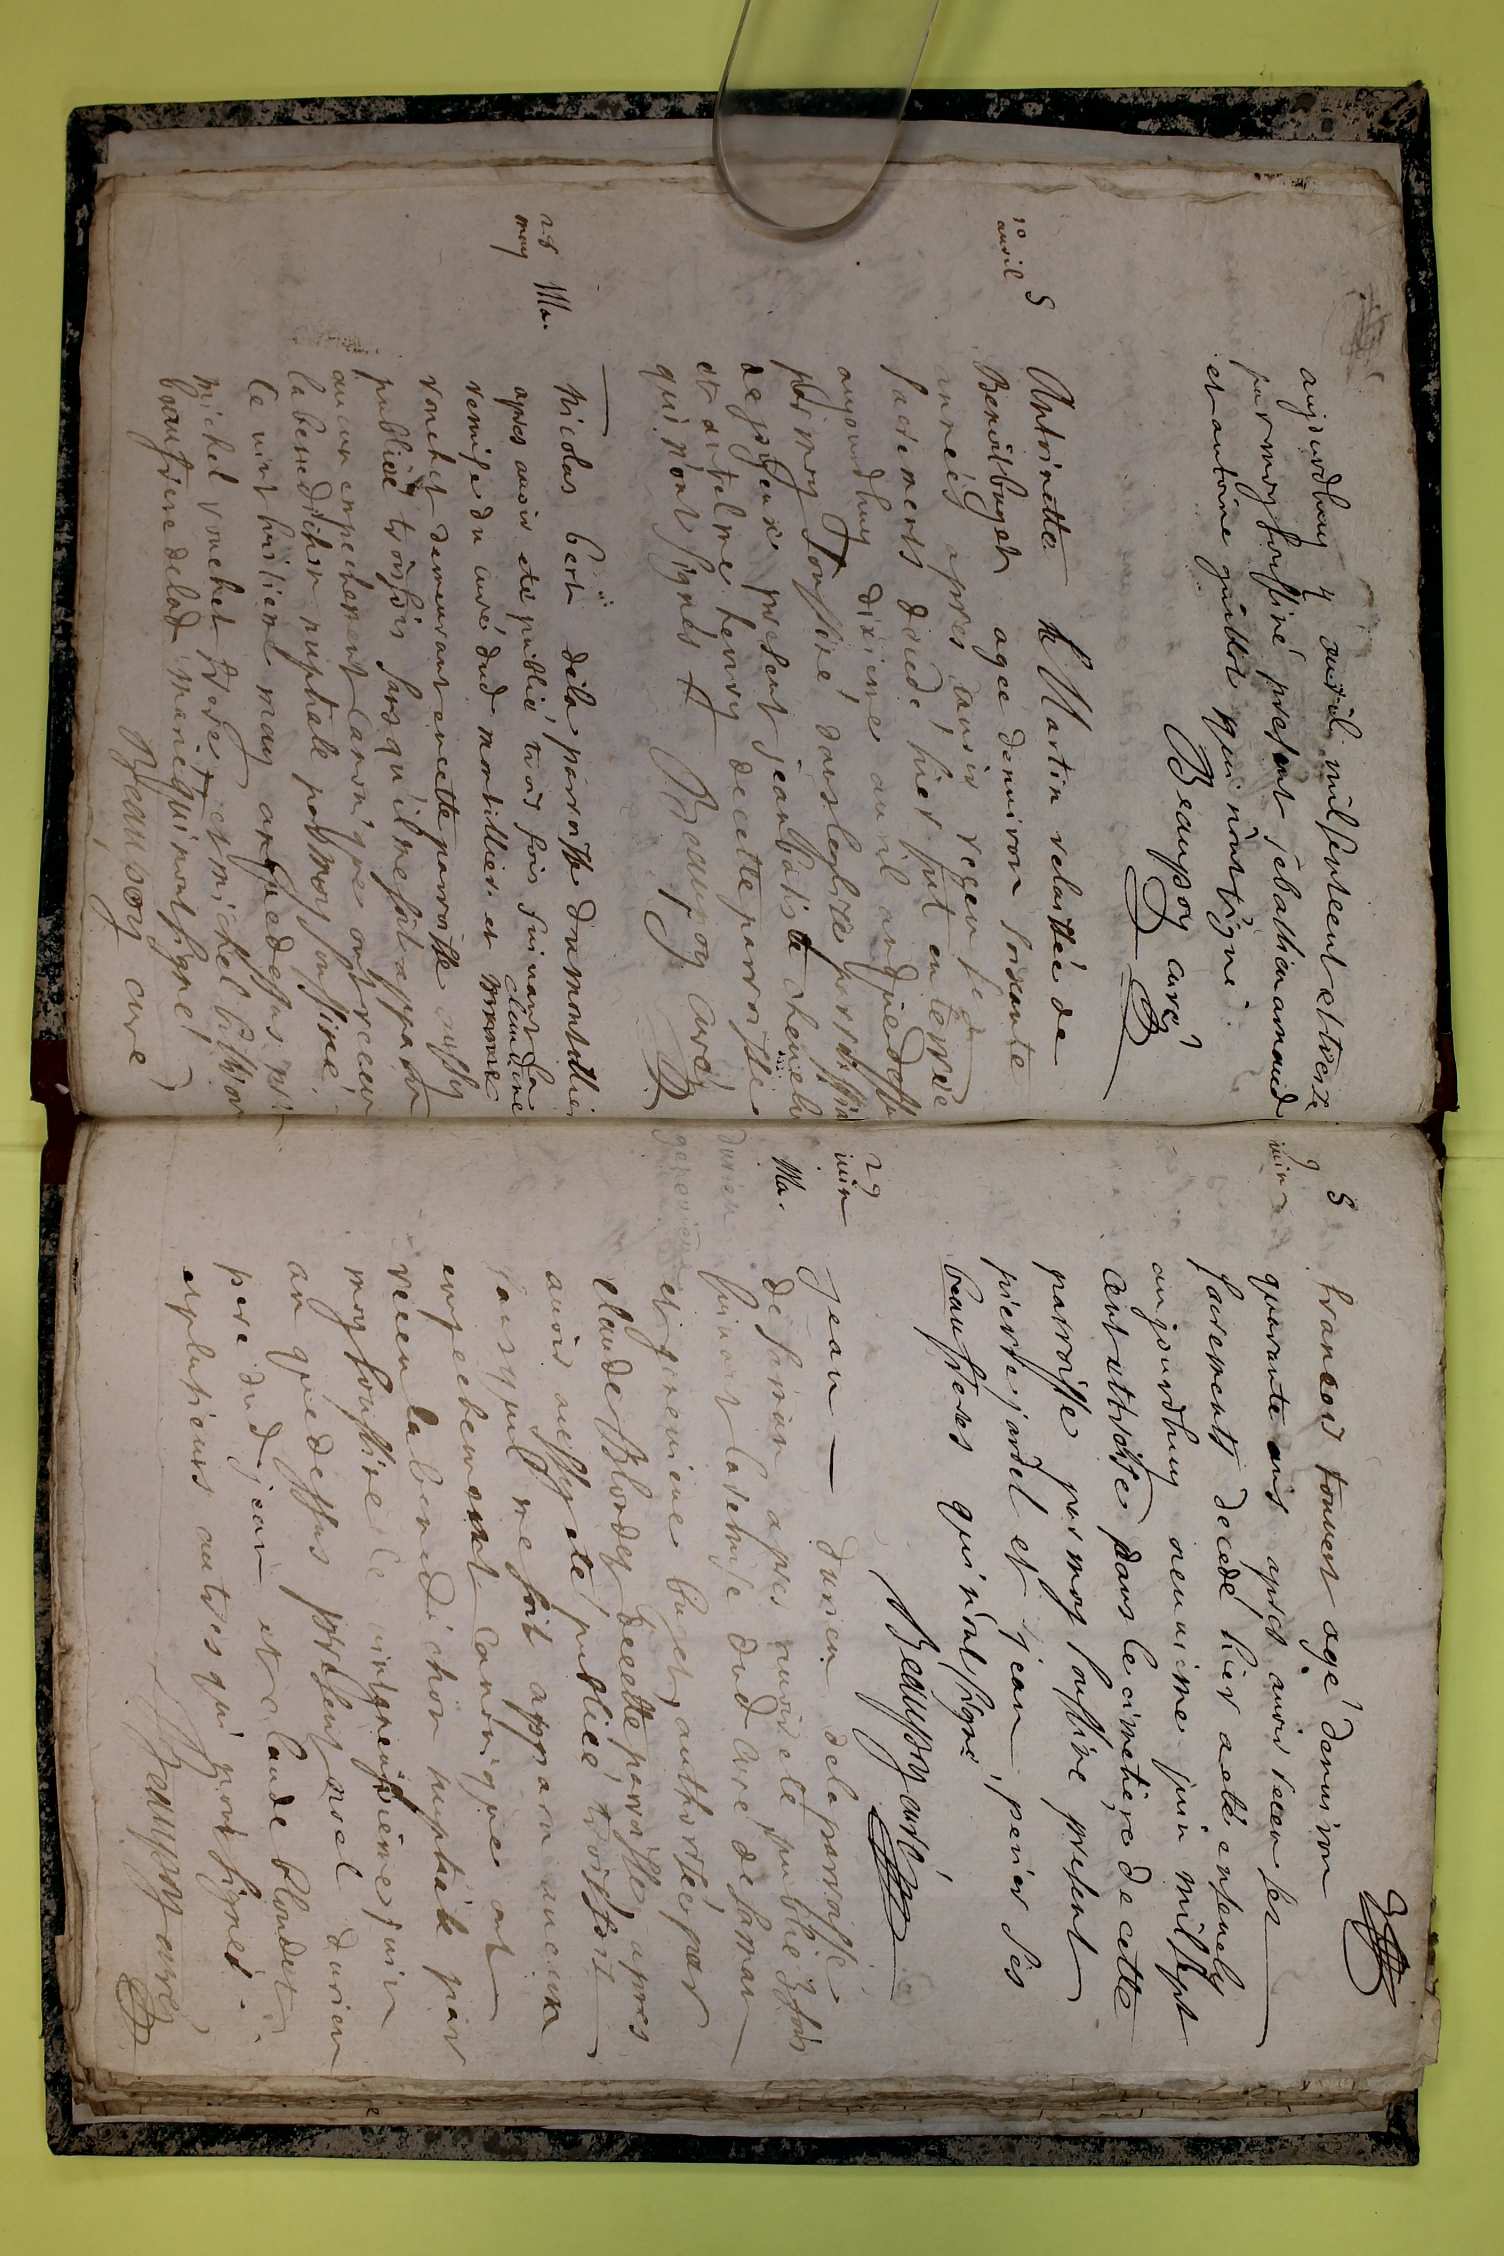 aujourdhuy 4 avril mil sept cent et treize
par moy soussine present sebasthien arnaud
et antoine guillot qui nont signé
Beaupoy curé
10
avril
S
Antoinette Martin relaissée de
Benoit buget agee denuiron soixante
années apres auoir receu se
sacrements decedé hier fut enterrée
aujourdhuy dixieme auril an quedessus
par moy soussiné dans leglise
present jean batiste
et antelme henry decette parroisse
qui n'ont signés Beaupoy curé
28
may
Ma.
Nicolas bert dela parroisse de montillier
apres auoir esté publié trois fois suiuant la
remise du curé dud montillier et claudine
vouchet demeurant encette parroisse aussy
publiée trois fois sans qu'il me soit apparu
aucun empechement canonique ont receu
la benediction nuptiale par moy soussiné
le vint huitieme may an quedessus pnt
michel vouchet frere et michel
beaufrere delad mariee qui nont signé
Beaupoy curé
9
juin
S
francois touuet agé denuiron
quarante ans aprés auoir receu ses
sacrements decedé hier a eté enseuely
aujourdhuy neuuieme juin mil sept
cent et treize dans le cimetiere de cette
parroisse par moy soussiné present
pierre jardet et jean perier ses
beaufreres qui n'ont signé
Beaupoy curé
29
juin
Ma.
Jean durieu dela parroisse
de sarian apres auoir eté publié 3 fois
suiuant laremise dud curé de sarian
et pereuiene buget authorisée par
claude blondet decette parroisse apres
auoir aussy eté publiee trois fois
sans quil me soit apparu aucun
empechement canonique ont
receu la benediction nuptiale par
moy soussiné le vint neuuieme juin
an quedessus present noel durieu
pere dud jean et claude blondet
et plusieurs autres qui n'ont signés.
Beaupoy curé